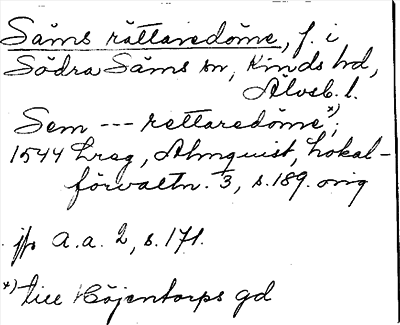 Säms rättaredöme, f. i
Södra Säms sn, Kinds hd,
Älvsb. l.
Sem --- rettaredöme *);
1544 Lreg, Almquist, Lokal-
förvaltn. 3, s. 189. orig
jfr a.a. 2, s. 171.
*) till Höjentorps gd